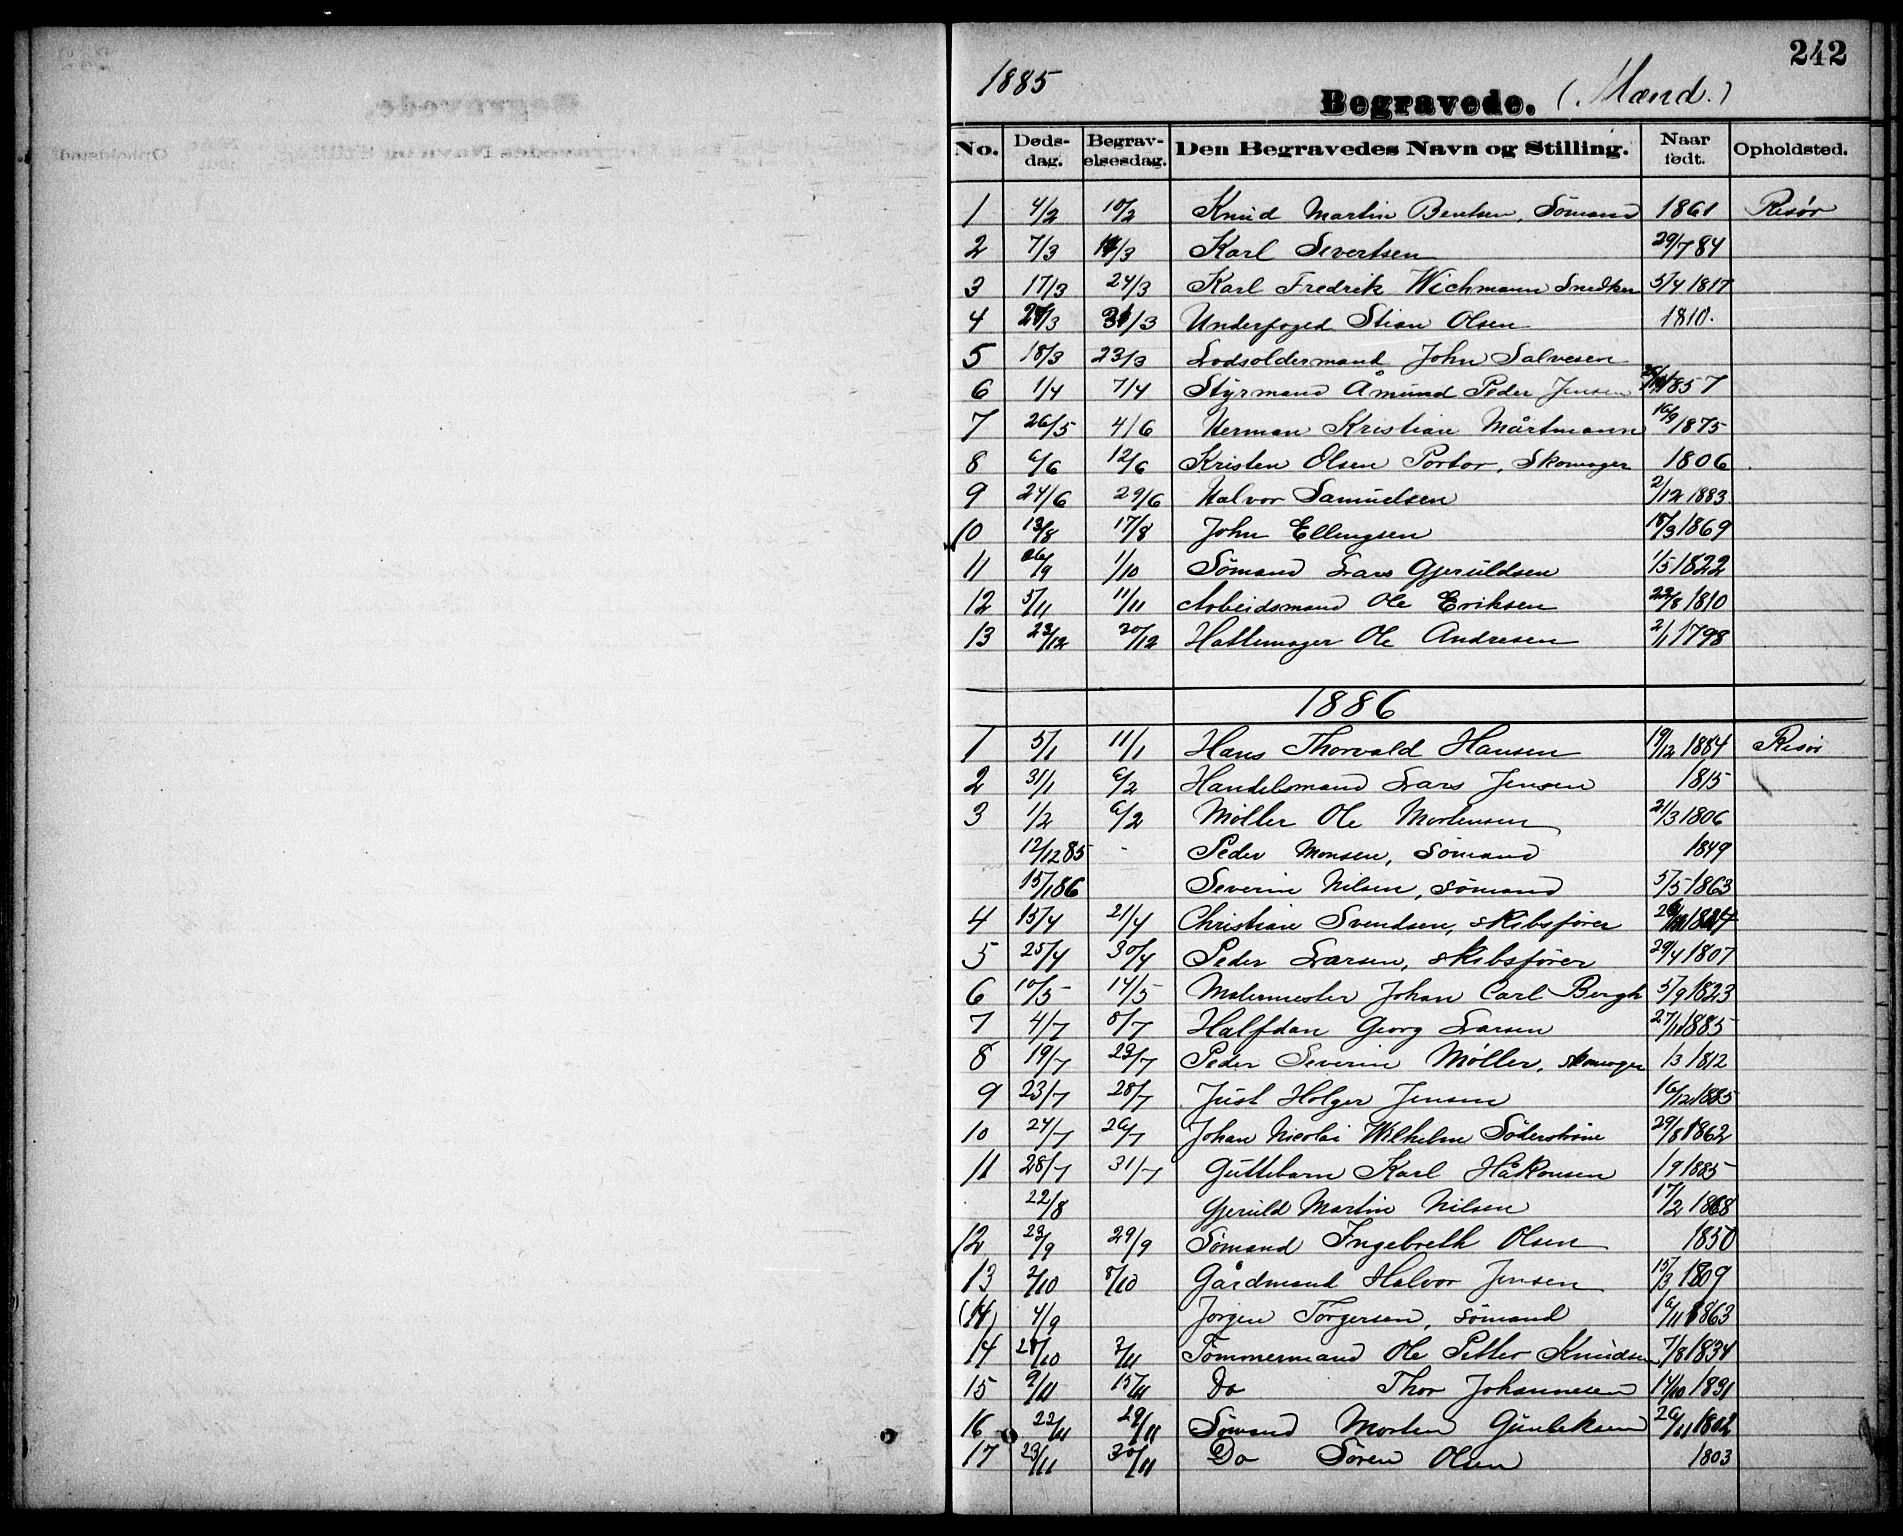 242
1885
Begravede. (Mænd.)
No. Døds-dag. Begrav-elsesdag. Den Begravedes Navn og Stilling. Naar født. Opholdsted.
1 4/2 10/2 Knud Martin Bentsen, Sømand 1861 Risør
2 7/3 /3 Karl Severtsen 29/7 84
3 17/3 24/3 Karl Fredrik Wichmann Snedker 5/4 1817
4 /3 31/3 Underfoged Stian Olsen 1810.
5 18/3 23/3 Lodsoldermand John Salvesen
6 1/4 7/4 Styrmand Åmund Peder Jensen 1857
7 26/5 4/6 Herman Kristian Mårtmann 16/9 1875
8 6/6 12/6 Kristen Olsen Portor, Skomager 1806
9 24/6 29/6 Halvor Samuelsen 2/12 1883
10 13/8 17/8 John Ellingsen 18/3 1869
11 26/9 1/10 Sømand Lars Gjeruldsen 1/5 1822
12 5/11 11/11 Arbeidsmand Ole Eriksen 22/8 1810
13 23/12 30/12 Hattemager Ole Andresen 2/1 1798
1886
1 5/1 11/1 Hans Thorvald Hansen 19/12 1884 Risør
2 31/1 6/2 Handelsmand Lars Jensen 1815
3 1/2 6/2 Møller Ole Mortensen 21/3 1806
12/12 85 - Peder Monsen, Sømand 1849
15/1 86 Severin Nilsen, sømand 5/5 1863
4 15/4 21/4 Christian Svendsen, skibsfører
5 25/4 30/4 Peder Larsen, skibsfører 29/4 1807
6 10/5 14/5 Malermester Johan Carl Bergh 5/9 1823
7 4/7 8/7 Halfdan Georg Larsen 27/11 1885
8 19/7 23/7 Peder Severin Møller, skomager 1/3 1812
9 23/7 28/7 Just Holger Jensen 16/12 1885
10 24/7 26/7 Johan Nicolai Wilhelm Söderström 29/8 1862
11 28/7 31/7 Guttebarn Karl Håkonsen 1/9 1885
22/8 Gjeruld Martin Nilsen 17/2 1868
12 23/9 29/9 Sømand Ingebreth Olsen 1850
13 2/10 8/10 Gårdmand Halvor Jensen 15/3 1809
(14) 4/9 Jørgen Tørgersen, sømand 16/11 1863
14 28/10 3/11 Tømmermand Ole Petter Knudsen 7/8 1834
15 9/11 15/11 Do Thor Johannesen 14/10 1831
16 22/11 29/11 Sømand Morten Gunleksen 26/11 1802
17 23/11 30/11 Do Søren Olsen 1803